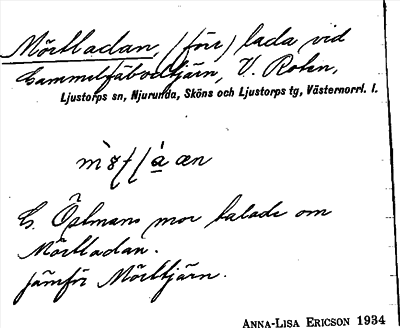 Mörtladan, (förr) lada vid
Gammelfäbodtjärn, V. Roten,
Ljustorps sn, Njurunda, Sköns och Ljustorps tg, Västernorrl. l.
E. Östmans mor talade om
Mörtladan.
Jämför Mörttjärn.
ANNA-LISA ERICSON 1934